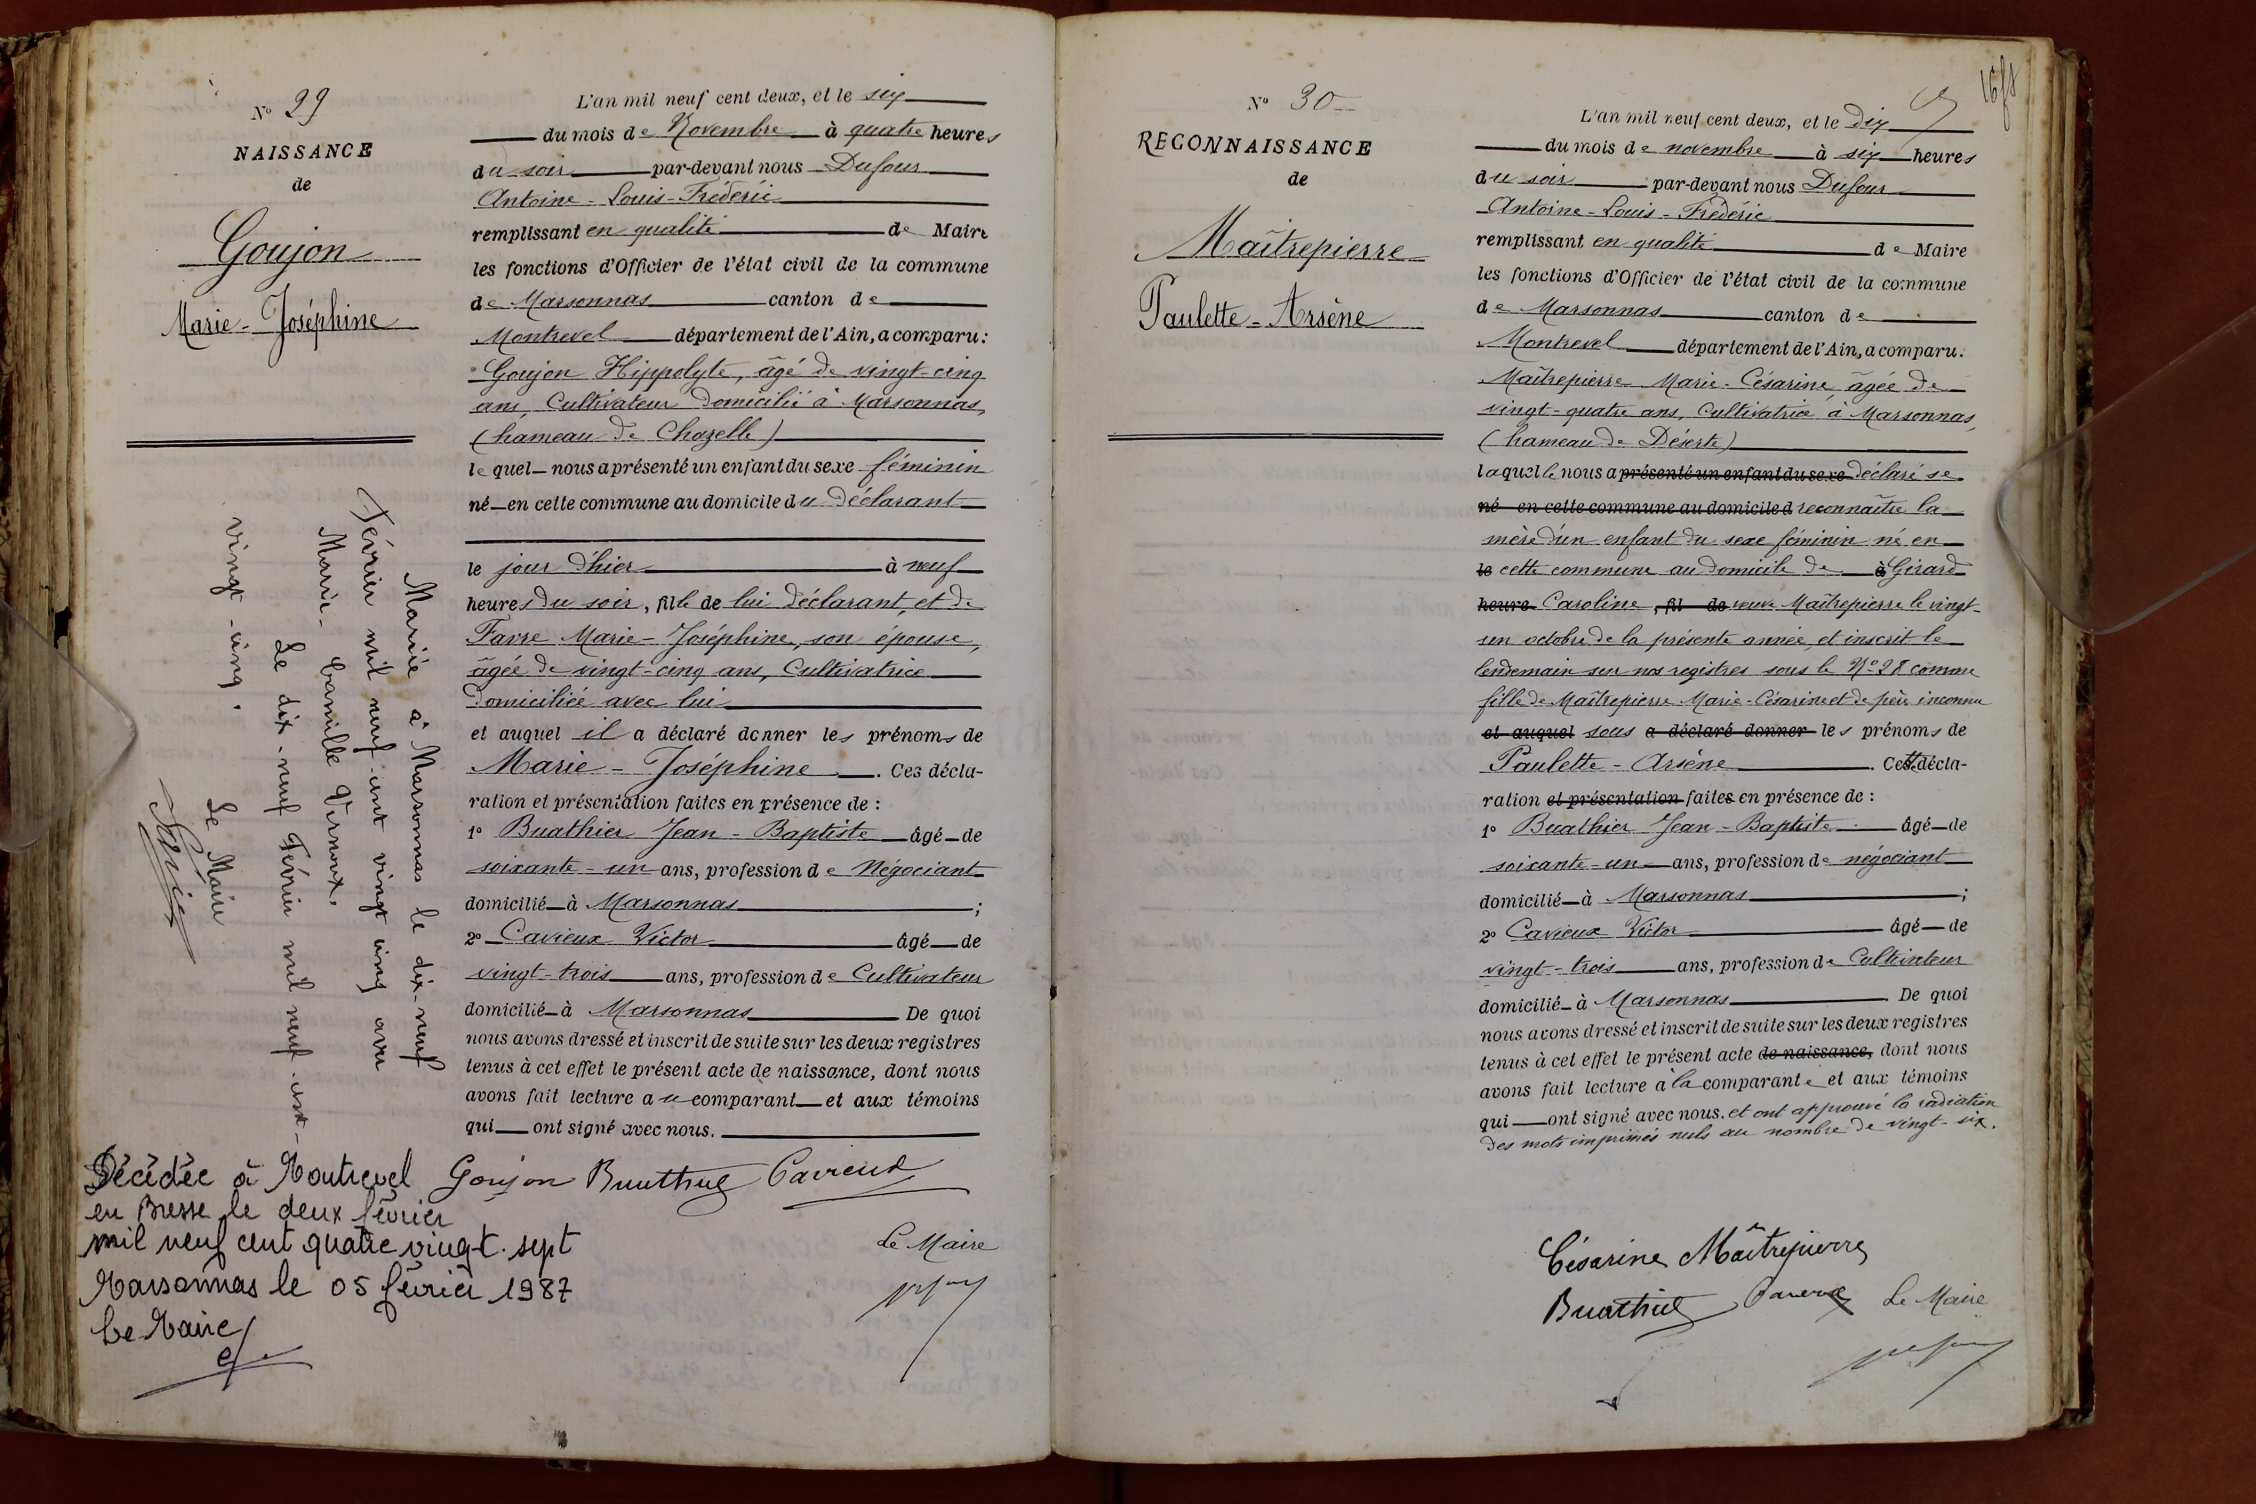 N° 29
NAISSANCE
de
Goujon
Marie-Joséphine
Mariée à Marsonnas le dix-neuf
Février mil neuf cent vingt cinq avec
Marie-Camille Vernoux.
Le dix-neuf Février mil neuf-cent-
vingt-cinq.
Le Maire
L'an mil neuf cent deux, et le six
du mois de Novembre à quatre heures
du soir par-devant nous Dufour
Antoine-Louis-Fréderic
remplissant en qualité de Maire
les fonctions d'Officier de l'état civil de la commune
de Marsonnas canton de
Montrevel département de l'Ain, a comparu:
Goujon Hippolyte, âgé de vingt-cinq
ans, Cultivateur domicilié à Marsonnas,
(hameau de Chazelle)
lequel nous a présenté un enfant du sexe féminin
né en cette commune au domicile du déclarant
le jour d'hier à neuf
heures du soir, fille de lui déclarant, et de
Favre Marie-Joséphine, son épouse,
âgée de vingt-cinq ans, Cultivatrice
domiciliée avec lui
et auquel il a déclaré donner les prénoms de
Marie-Joséphine. Ces décla-
ration et présentation faites en présence de :
1° Buathier Jean-Baptiste âgé de
soixante-un ans, profession de Négociant
domicilié à Marsonnas ;
2° Cavieux Victor âgé de
vingt-trois ans, profession de Cultivateur
domicilié à Marsonnas De quoi
nous avons dressé et inscrit de suite sur les deux registres
tenus à cet effet le présent acte de naissance, dont nous
avons fait lecture au comparant et aux témoins
qui ont signé avec nous.
Goujon Buathier Cavieux
Le Maire
Décédée à Montrevel
en Bresse le deux février
mil neuf cent quatre vingt-sept
Marsonnas le 05 février 1987
Le Maire
16 f
N° 30
RECONNAISSANCE
de
Maîtrepierre
Paulette-Arsène
L'an mil neuf cent deux, et le dix
du mois de novembre à six heures
du soir par-devant nous Dufour
Antoine-Louis-Frédéric
remplissant en qualité de Maire
les fonctions d'Officier de l'état civil de la commune
de Marsonnas canton de
Montrevel département de l'Ain, a comparu.
Maîtrepierre Marie-Césarine âgée de
vingt-quatre ans, Cultivatrice à Marsonnas,
(hameau de Déserte)
laquelle nous a présenté un enfant du sexe déclaré se
né en cette commune au domicile d reconnaître la
mère d'un enfant du sexe féminin né en
le cette commune au domicile de à Girard
heure Caroline, fil de veuve Maîtrepierre le vingt-
un octobre de la présente année, et inscrit le
lendemain sur nos registres sous le N° 28 comme
fille de Maîtrepierre Marie-Césarine et de père inconnu
et auquel sous a déclaré donner les prénoms de
Paulette-Arsène. Cette décla-
ration et présentation faites en présence de :
1° Buathier Jean-Baptiste âgé de
soixante-un ans, profession de négociant
domicilié à Marsonnas ;
2° Cavieux Victor âgé de
vingt-trois ans, profession de Cultivateur
domicilié à Marsonnas De quoi
nous avons dressé et inscrit de suite sur les deux registres
tenus à cet effet le présent acte de naissance, dont nous
avons fait lecture à la comparante et aux témoins
qui ont signé avec nous. et ont approuvé la radiation
des mots imprimés nuls au nombre de vingt-six.
Césarine Maîtrepierre
Buathier Cavieux Le Maire